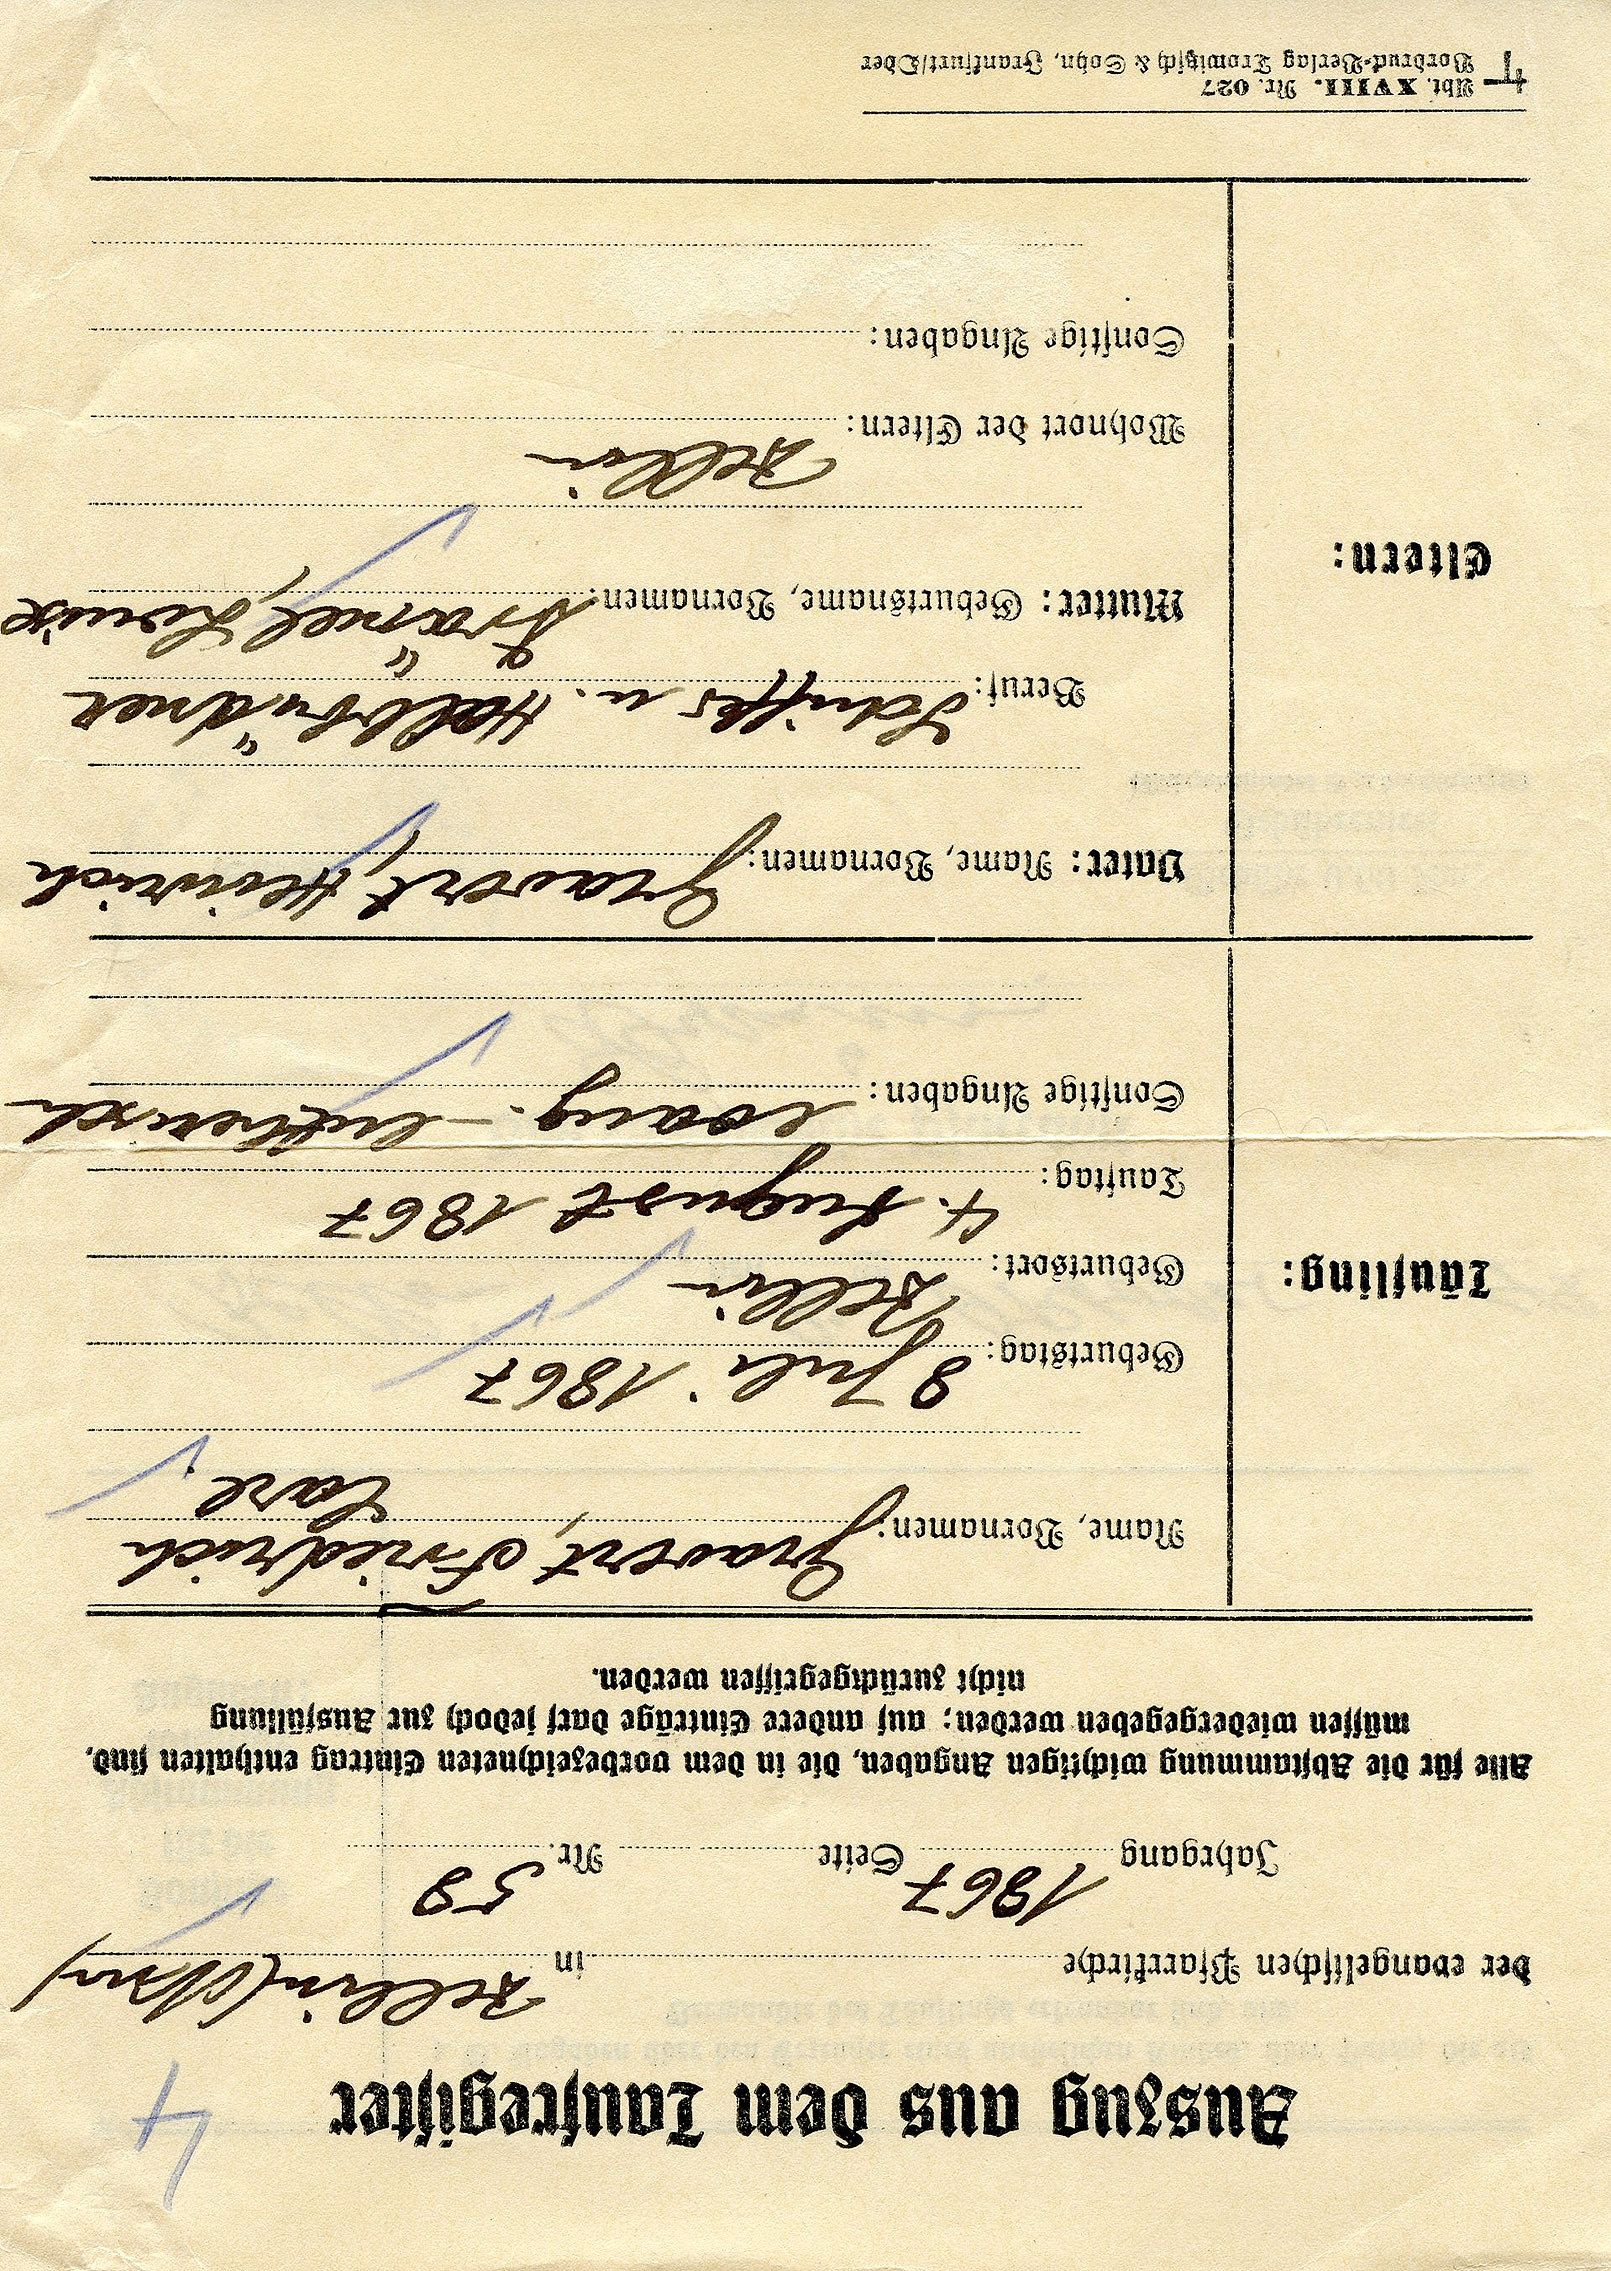 4
Auszug aus dem Taufregister
der evangelischen Pfarrkirche in Zellin (Oder)
Jahrgang 1867 Seite Nr. 59
Alle für die Abstammung wichtigen Angaben, die in dem vorbezeichneten Eintrag enthalten sind,
müssen wiedergegeben werden; auf andere Einträge darf jedoch zur Ausfüllung
nicht zurückgegriffen werden.
Täufling:
Name, Vornamen: Gravert, Friedrich
Carl
Geburtstag: 8 Juli 1867
Geburtsort: Zellin
Tauftag: 4. August 1867
Sonstige Angaben: evang. - lutherisch
Eltern:
Vater: Name, Vornamen: Gravert, Heinrich
Beruf: Schiffer u. Halbbüdner
Mutter: Geburtsname, Vornamen: Louise
Wohnort der Eltern: Zellin
Sonstige Angaben:
Abt. XVIII. Nr. 027
Vordruck-Verlag Trowitzsch & Sohn, Frankfurt/Oder